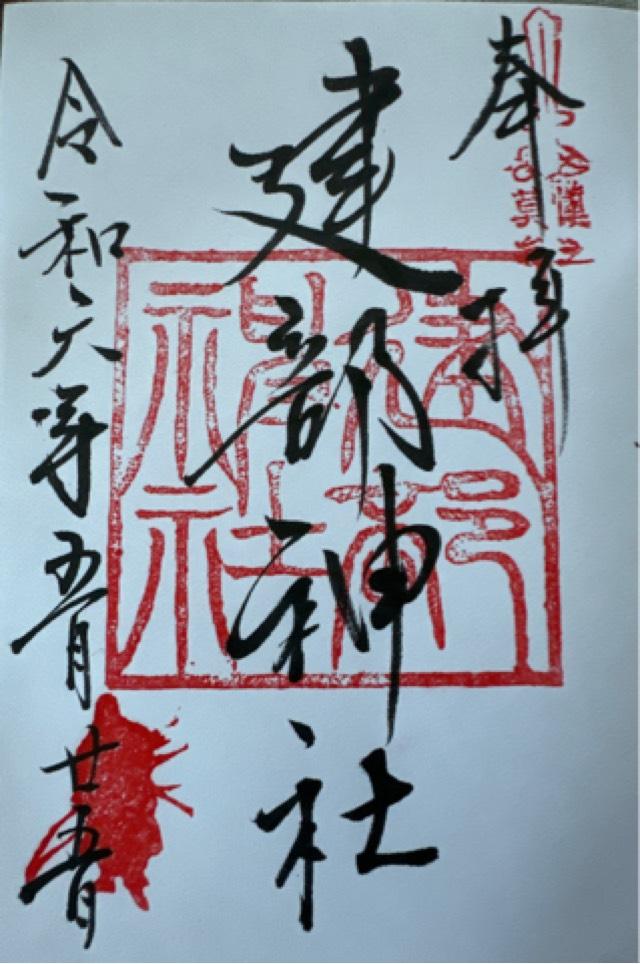 奉拝
建部神社
令和六年五月廿五日
建部
神社